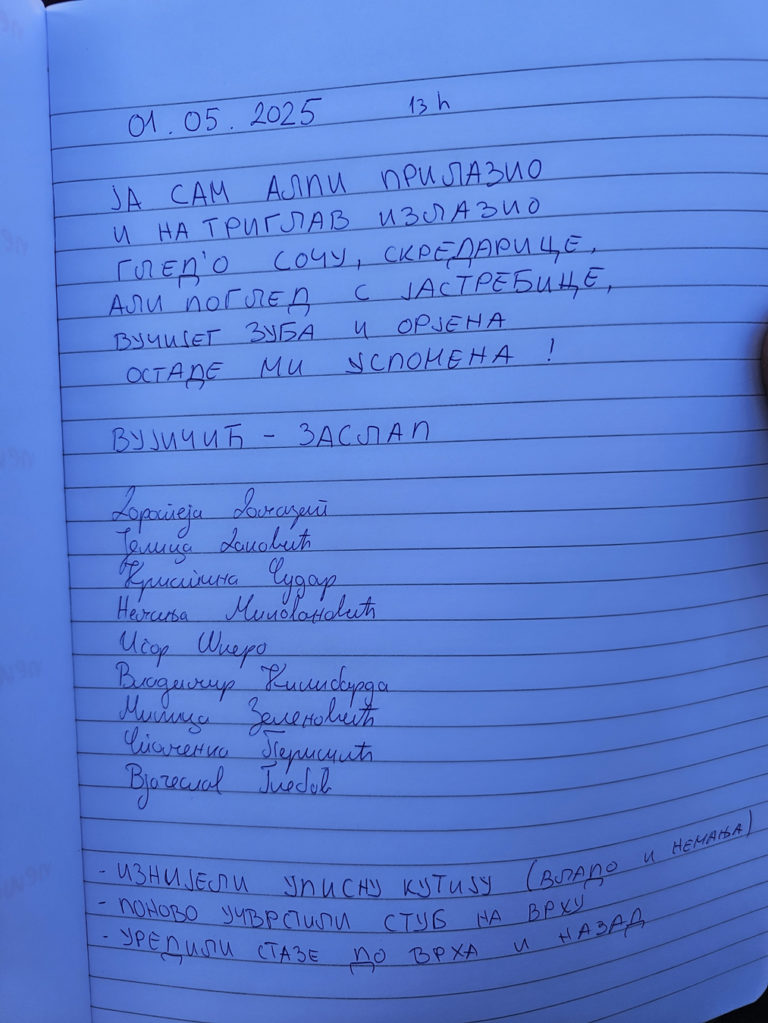 01.05.2025 13 h
ЈА САМ АЛПИ ПРИЛАЗИО
И НА ТРИГЛАВ ИЗЛАЗИО
ГЛЕД'О СОЧУ, СКРЕДАРИЦЕ,
АЛИ ПОГЛЕД С ЈАСТРЕБИЦЕ,
ВУЧИЈЕГ ЗУБА И ОРЈЕНА
ОСТАДЕ МИ УСПОМЕНА !
ВУЈИЧИЋ - ЗАСЛАП
Доротеја
Јелица Даковић
Кристина Чудар
Немања Миловановић
Игор Шкеро
Владимир Килибарда
Милица Зеленовић
Споменка Перишић
Вјачеслав Глебов
- ИЗНИЈЕЛИ УПИСНУ КУТИЈУ (ВЛАДО И НЕМАЊА)
- ПОНОВО УЧВРСТИЛИ СТУБ НА ВРХУ
- УРЕДИЛИ СТАЗЕ ДО ВРХА И НАЗАД